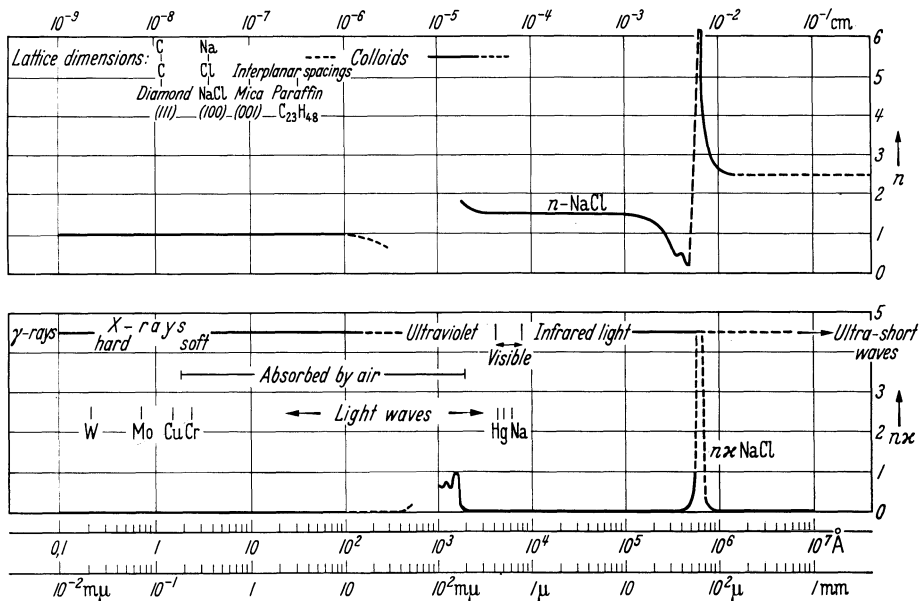 10⁻⁹ 10⁻⁸ 10⁻⁷ 10⁻⁶ 10⁻⁵ 10⁻⁴ 10⁻³ 10⁻² 10⁻¹ cm
Lattice dimensions: C Na Colloids
C Cl Interplanar spacings
Diamond NaCl Mica Paraffin
(111) (100) (001) C₂₃H₄₈
6
5
4
3
2
1
0
n
n-NaCl
γ-rays X-rays Ultraviolet Infrared light Ultra-short
hard soft Visible waves
Absorbed by air
Light waves
W Mo Cu Cr Hg Na
nϰ NaCl
5
4
3
2
1
0
nϰ
0,1 1 10 10² 10³ 10⁴ 10⁵ 10⁶ 10⁷ Å
10⁻² mμ 10⁻¹ 1 10 10² mμ 1μ 10 10² μ 1mm